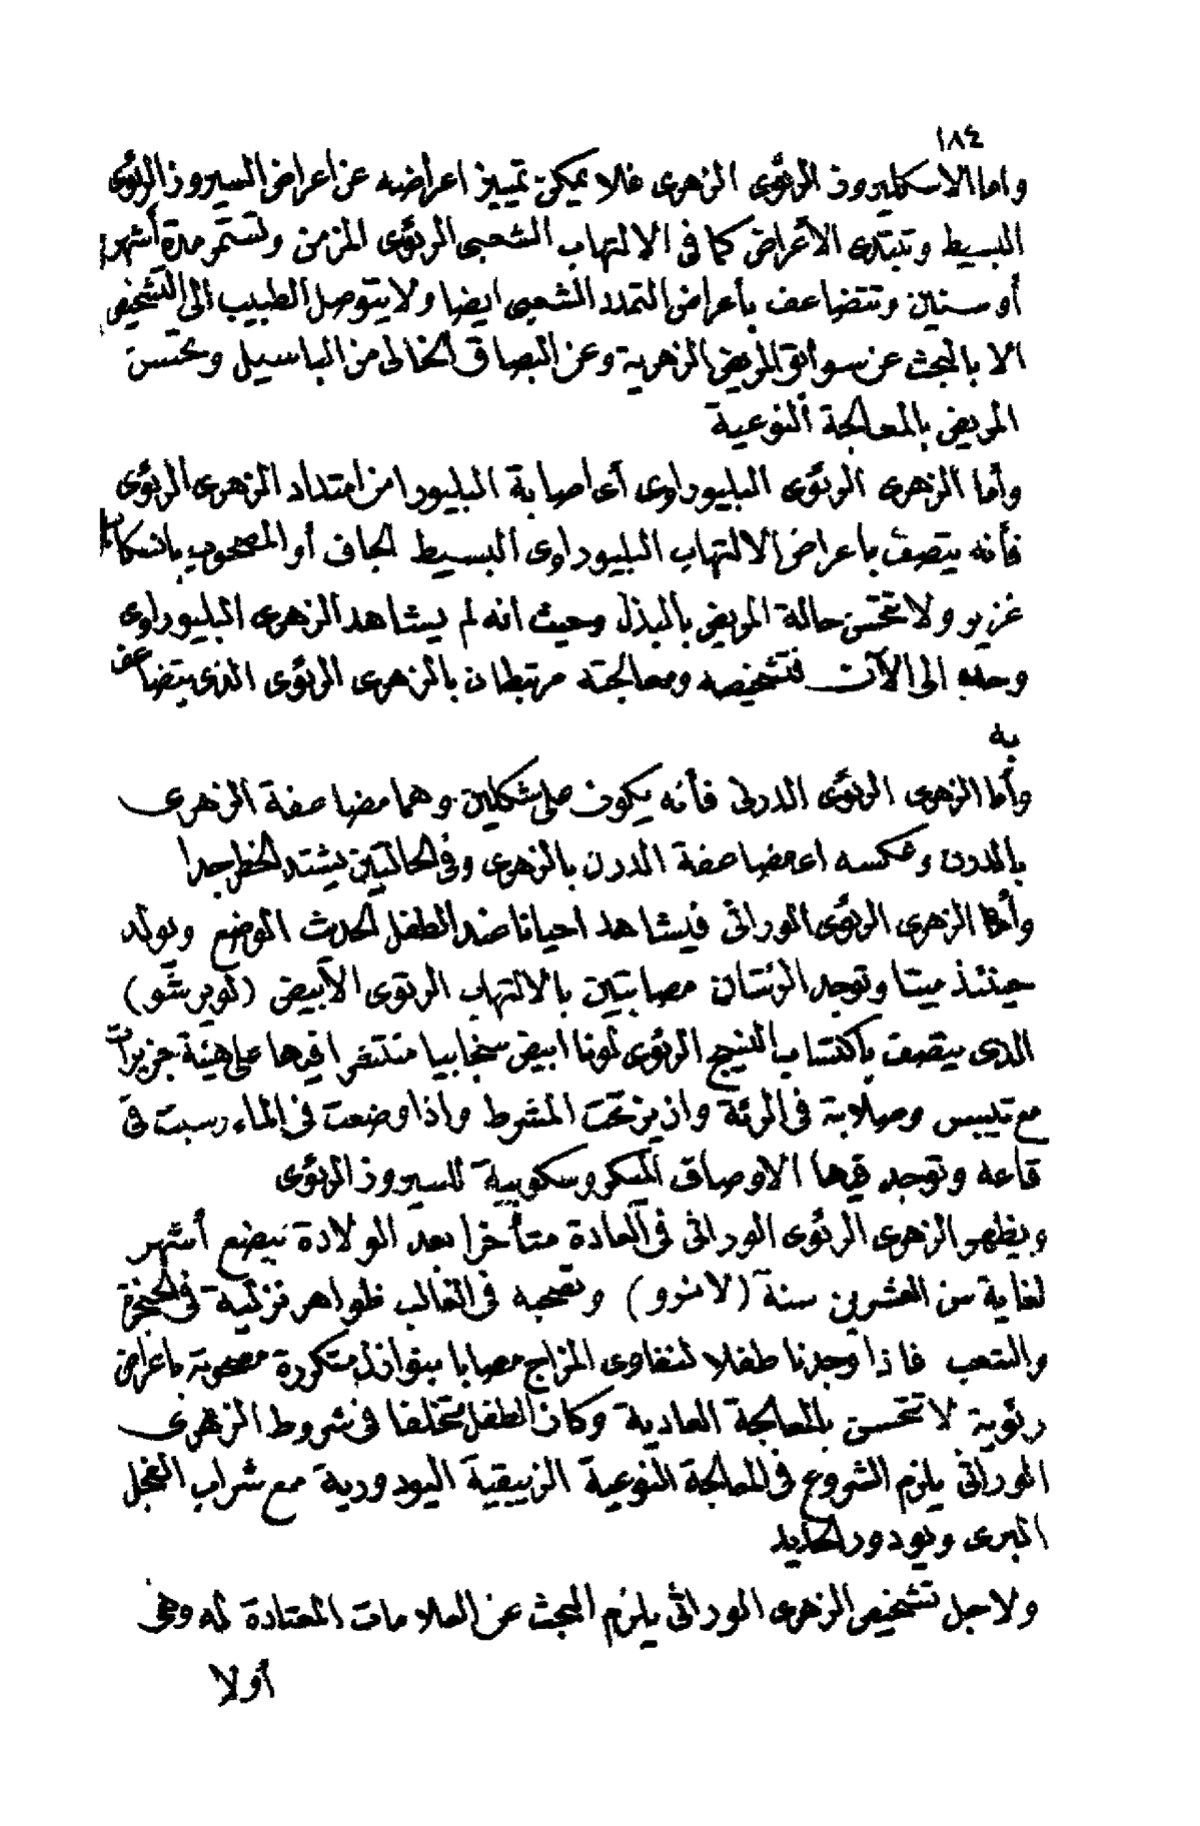 ١٨٤
واما الاسكليروز الرئوى الزهرى فلا يمكن تمييز اعراضه عن اعراض السيروز الرئوى
البسيط وتبتدى الأعراض كما فى الالتهاب الشعبى الرئوى المزمن وتستمر مدة أشهر
أو سنين وتتضاعف بأعراض التمدد الشعبى ايضا ولا يتوصل الطبيب الى التشخيص
الا بالبحث عن سوابق المريض الزهرية وعن البصاق الخالى من الباسيل وتحسن
المريض بالمعالجة النوعية
وأما الزهرى الرئوى البليوراوى أى اصابة البليورا من امتداد الزهرى الرئوى
فأنه يتصف باعراض الالتهاب البليوراوى البسيط الجاف أو المصحوب بانسكاب
غزير ولا تتحسن حالة المريض بالبذل وحيث انه لم يشاهد الزهرى البليوراوى
وحده الى الآن فتشخيصه ومعالجته مرتبطان بالزهرى الرئوى الذى يتضاعف
به
وأما الزهرى الرئوى الدرنى فأنه يكون على شكلين وهما مضاعفة الزهرى
بالدرن وعكسه اى مضاعفة الدرن بالزهرى وفى الحالتين يشتد الخطر جدا
وأما الزهرى الرئوى الوراثى فيشاهد احيانا عند الطفل الحدث الوضع ويولد
حينئذ ميتا وتوجد الرئتان مصابتين بالالتهاب الرئوى الأبيض (لويرشو)
الذى يتصف باكتساب النسيج الرئوى لونا ابيض سنجابيا منتشرا فيها على هيئة جزيرات
مع تيبس وصلابة فى الرئة وازيز تحت المشرط واذا وضعت فى الماء رسبت فى
قاعه وتوجد فيها الاوصاف الميكروسكوبية للسيروز الرئوى
ويظهر الزهرى الرئوى الوراثى فى العادة متأخرا بعد الولادة ببضع أشهر
لغاية سن العشرين سنة (لانزو) وتصحبه فى الغالب ظواهر نزلية فى الحنجرة
والشعب فاذا وجدنا طفلا لنفاوى المزاج مصابا بنوازل متكررة مصحوبة باعراض
رئوية لا تتحسن بالمعالجة العادية وكان الطفل متخلفا فى شروط الزهرى
الوراثى يلزم الشروع فى المعالجة النوعية الزيبقية اليودورية مع شراب الفجل
البرى ويودور الحديد
ولاجل تشخيص الزهرى الوراثى يلزم البحث عن العلامات المعتادة له وهى
أولا